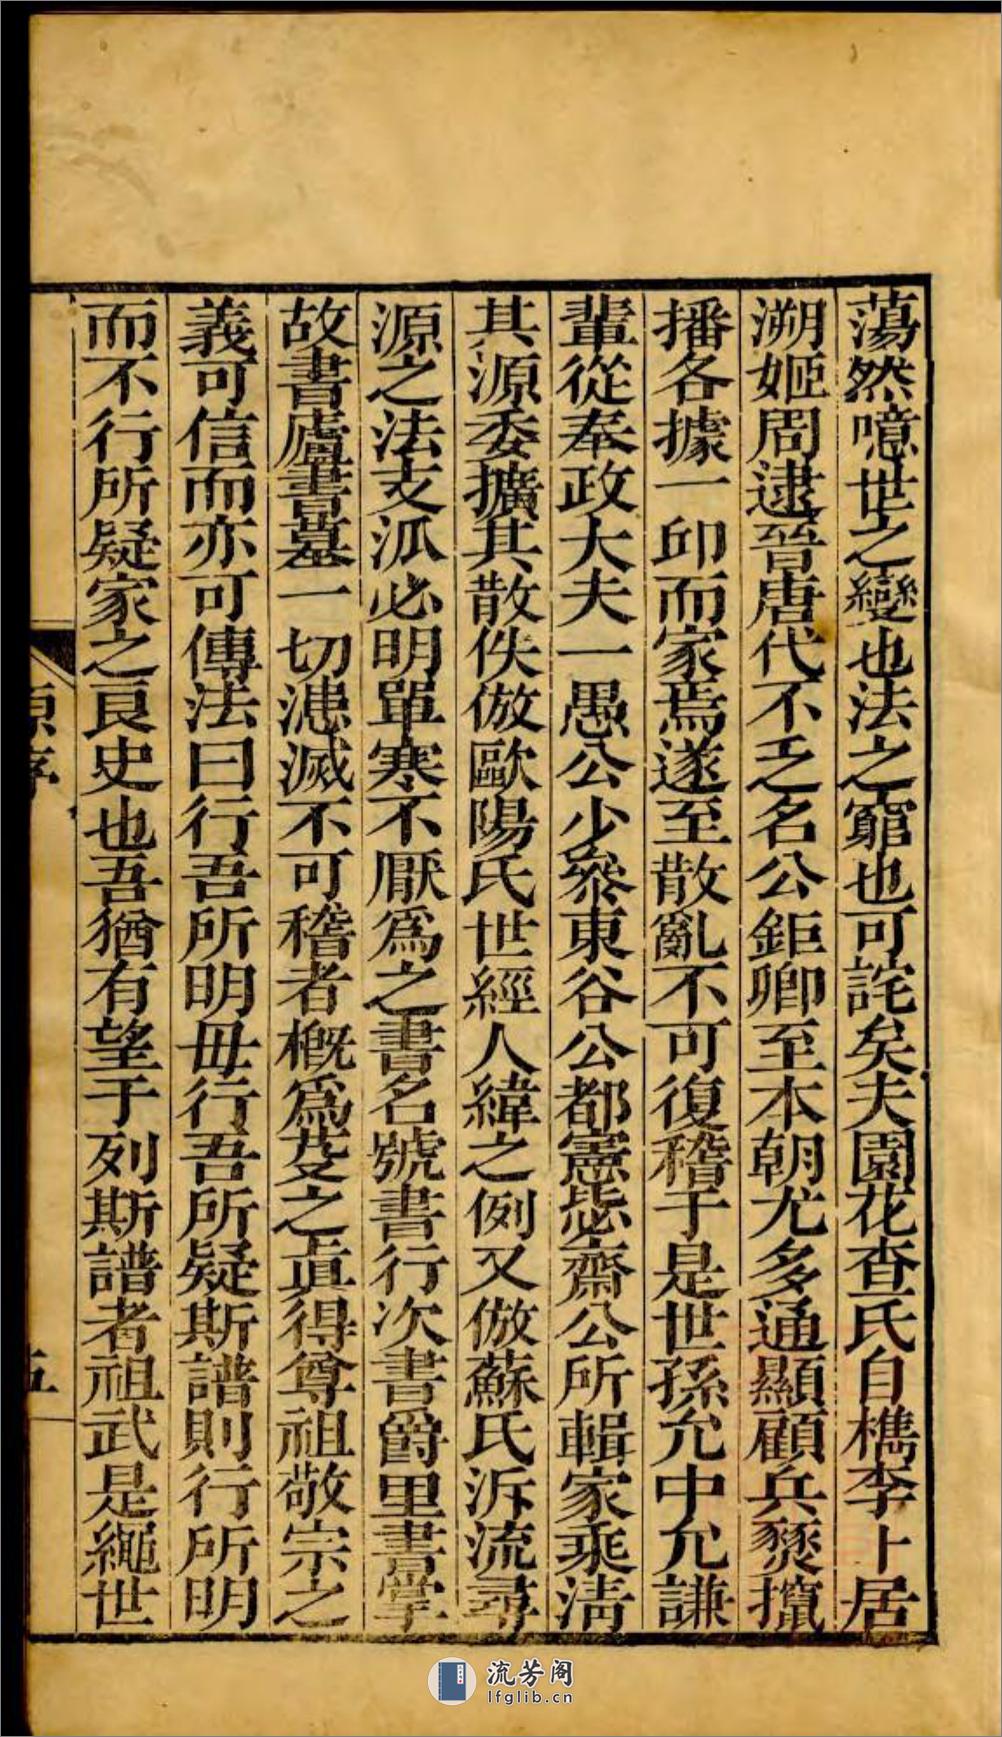 蕩然噫世之變也法之窮也可詫矣夫園花查氏自檇李卜居
溯姬周逮晉唐代不乏名公鉅卿至本朝尤多通顯顧兵燹攛
播各據一邱而家焉遂至散亂不可復稽于是世孫允中允謙
輩從奉政大夫一愚公少叅東谷公都憲毖齋公所輯家乘淸
其源委擴其散佚倣歐陽氏世經人緯之例又倣蘇氏泝流尋
源之法支派必明單寒不厭爲之書名號書行次書爵里書掌
故書廬書墓一切漶滅不可稽者槪爲芟之眞得尊祖敬宗之
義可信而亦可傳法曰行吾所明毋行吾所疑斯譜則行所明
而不行所疑家之良史也吾猶有望于列斯譜者祖武是繩世
原序
五
流芳阁
lfglib.cn